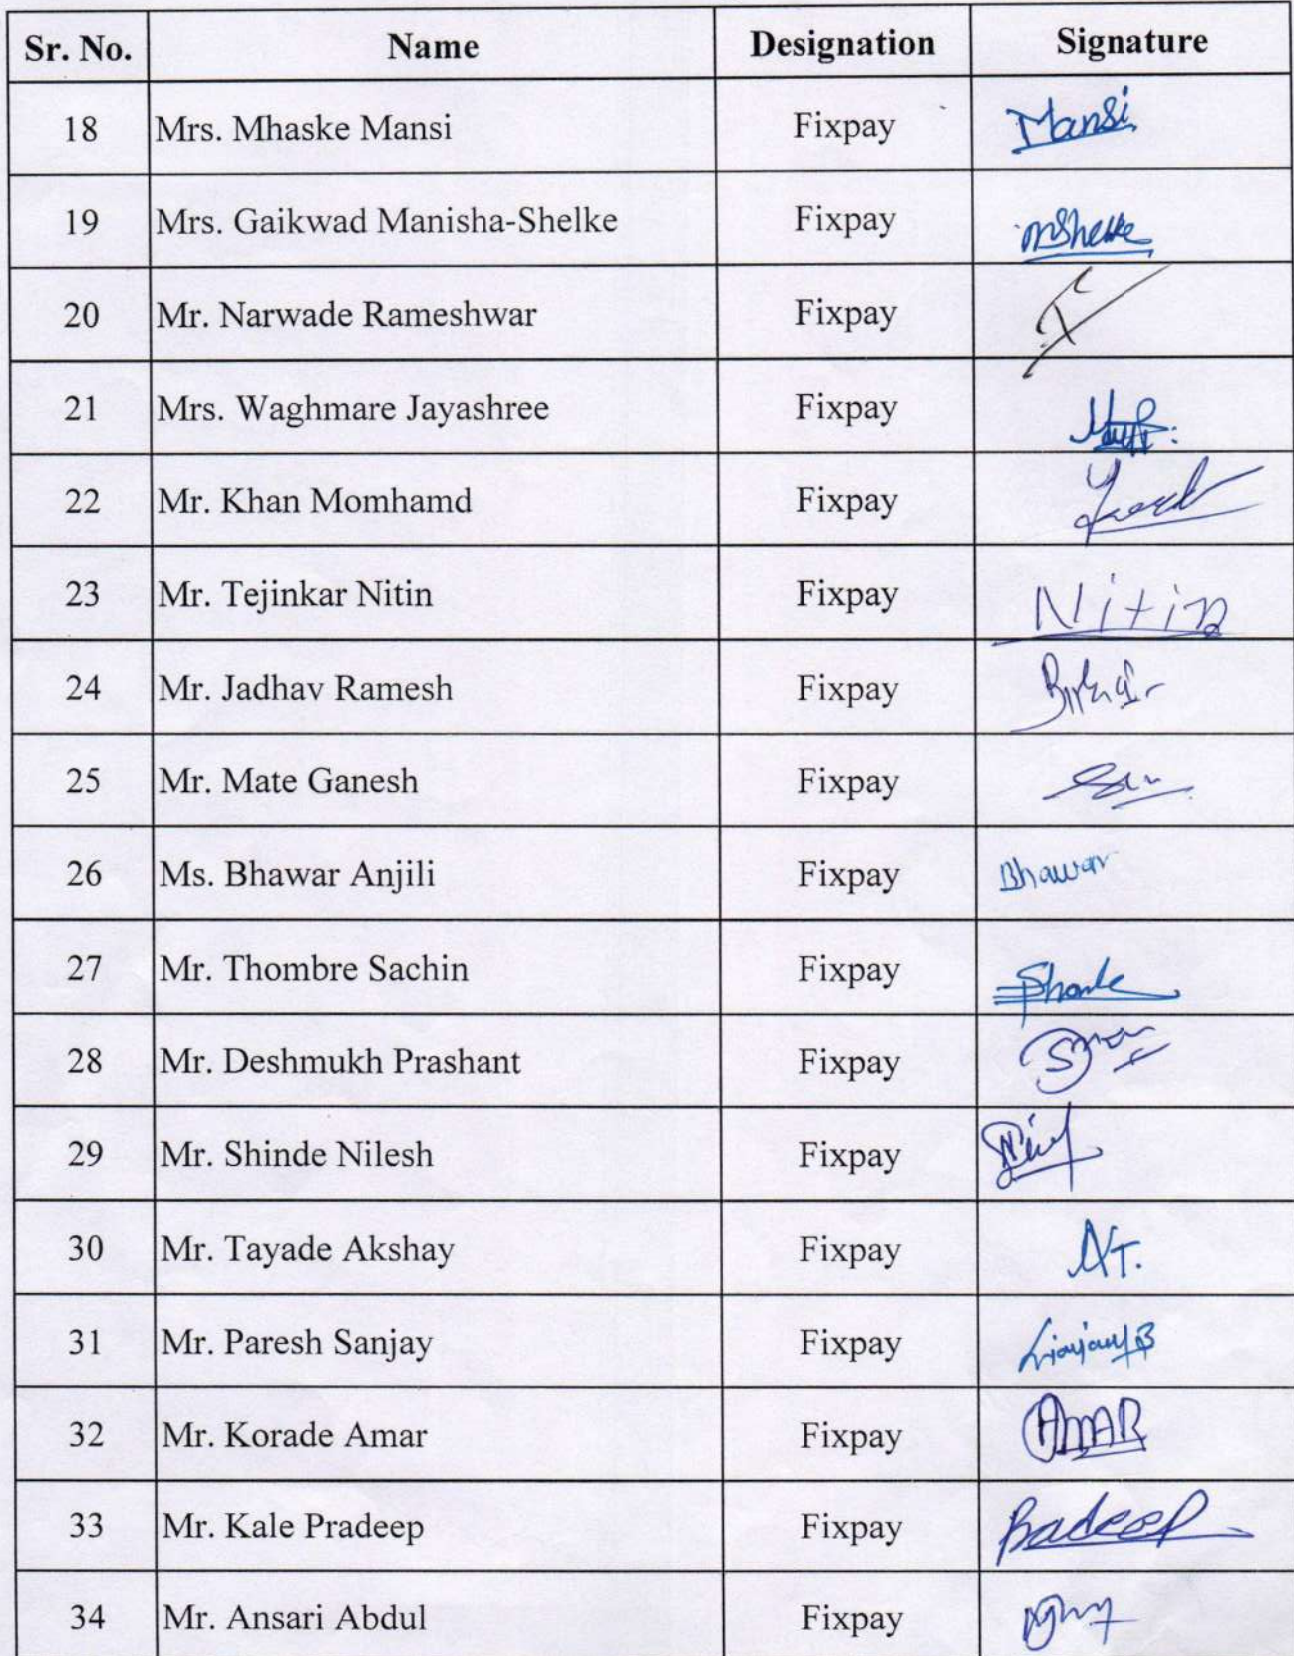 Sr. No. Name Designation Signature
18 Mrs. Mhaske Mansi Fixpay Mansi
19 Mrs. Gaikwad Manisha-Shelke Fixpay mshelke
20 Mr. Narwade Rameshwar Fixpay
21 Mrs. Waghmare Jayashree Fixpay
22 Mr. Khan Momhamd Fixpay
23 Mr. Tejinkar Nitin Fixpay Nitin
24 Mr. Jadhav Ramesh Fixpay
25 Mr. Mate Ganesh Fixpay
26 Ms. Bhawar Anjili Fixpay Bhawar
27 Mr. Thombre Sachin Fixpay
28 Mr. Deshmukh Prashant Fixpay
29 Mr. Shinde Nilesh Fixpay
30 Mr. Tayade Akshay Fixpay
31 Mr. Paresh Sanjay Fixpay
32 Mr. Korade Amar Fixpay AMAR
33 Mr. Kale Pradeep Fixpay Pradeep
34 Mr. Ansari Abdul Fixpay